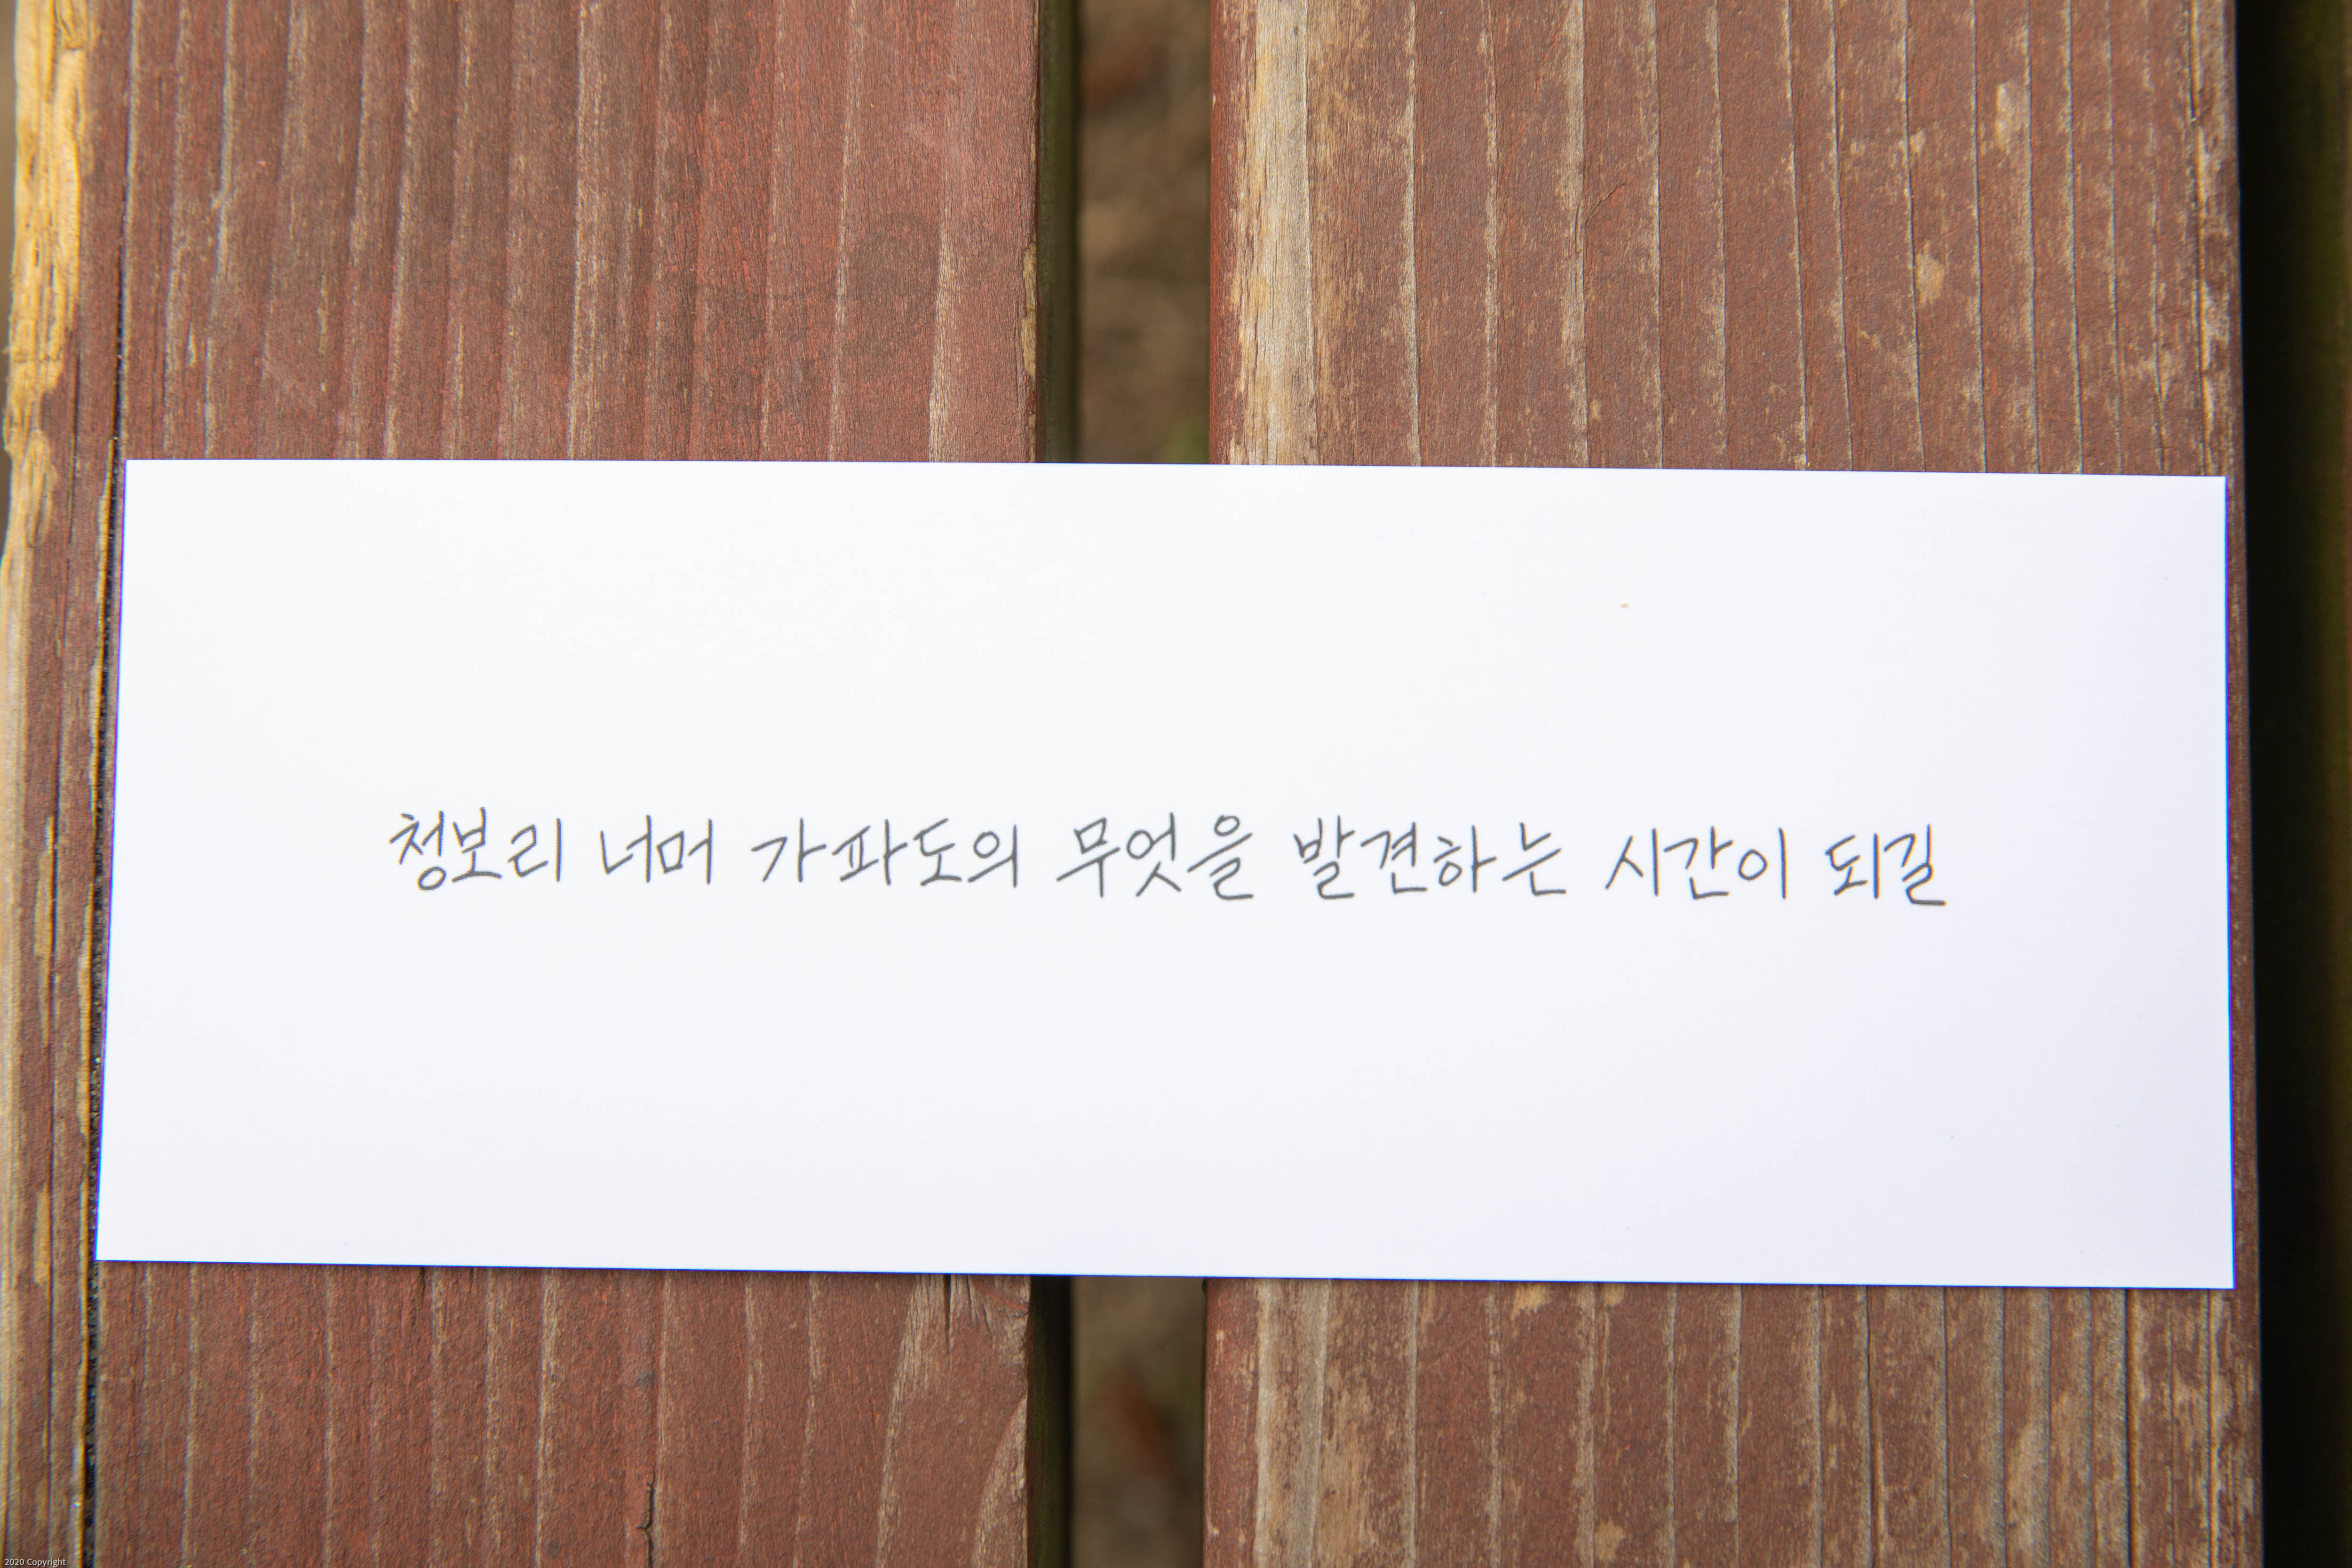 청보리 너머 가파도의 무엇을 발견하는 시간이 되길
2020 Copyright